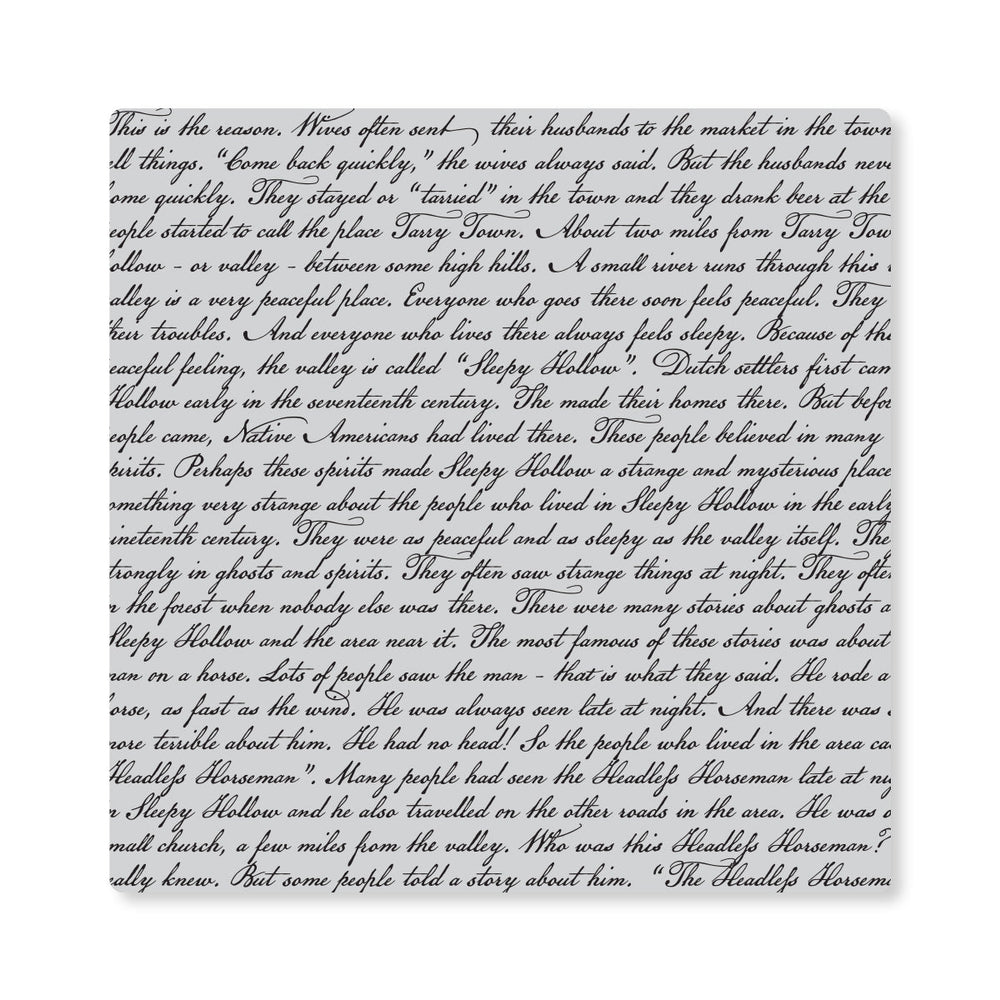 This is the reason. Wives often sent their husbands to the market in the town
ell things. "Come back quickly," the wives always said. But the husbands neve
ome quickly. They stayed or "tarried" in the town and they drank beer at the
eople started to call the place Tarry Town. About two miles from Tarry Tow
ollow - or valley - between some high hills. A small river runs through this
alley is a very peaceful place. Everyone who goes there soon feels peaceful. They
their troubles. And everyone who lives there always feels sleepy. Because of the
eaceful feeling, the valley is called "Sleepy Hollow". Dutch settlers first cam
Hollow early in the seventeenth century. The made their homes there. But befor
eople came, Native Americans had lived there. These people believed in many
pirits. Perhaps these spirits made Sleepy Hollow a strange and mysterious place
omething very strange about the people who lived in Sleepy Hollow in the early
ineteenth century. They were as peaceful and as sleepy as the valley itself. The
trongly in ghosts and spirits. They often saw strange things at night. They ofte
n the forest when nobody else was there. There were many stories about ghosts a
Sleepy Hollow and the area near it. The most famous of these stories was about
man on a horse. Lots of people saw the man - that is what they said. He rode a
orse, as fast as the wind. He was always seen late at night. And there was
more terrible about him. He had no head! So the people who lived in the area ca
Headleſs Horseman". Many people had seen the Headleſs Horseman late at nig
n Sleepy Hollow and he also travelled on the other roads in the area. He was o
mall church, a few miles from the valley. Who was this Headleſs Horseman?
eally knew. But some people told a story about him. "The Headleſs Horsema